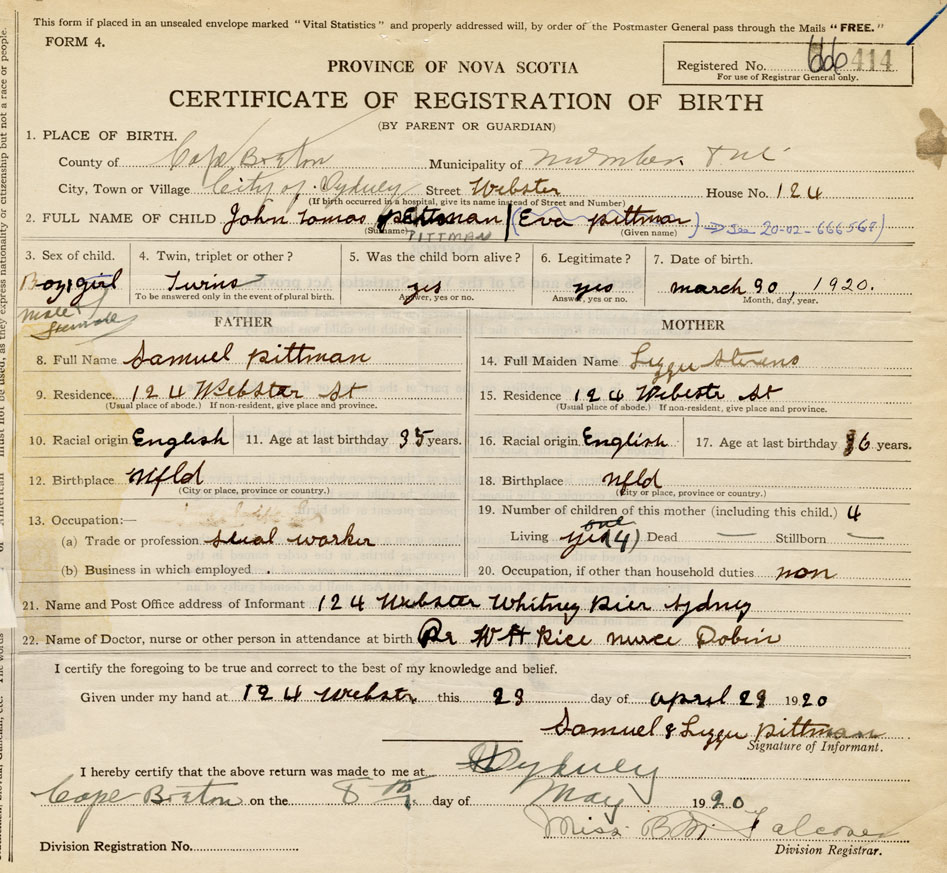 This form if placed in an unsealed envelope marked "Vital Statistics" and properly addressed will, by order of the Postmaster General pass through the Mails "FREE."
FORM 4.
Registered No. 414
For use of Registrar General only.
PROVINCE OF NOVA SCOTIA
CERTIFICATE OF REGISTRATION OF BIRTH
(BY PARENT OR GUARDIAN)
1. PLACE OF BIRTH.
County of Cape Breton Municipality of number
City, Town or Village City of Sydney Street Webster House No. 124
(If birth occurred in a hospital, give its name instead of Street and Number)
2. FULL NAME OF CHILD John Tomas pittman / (Eva pittman) See 20-02-666567
(Surname) PITTMAN (Given name)
3. Sex of child. 4. Twin, triplet or other? 5. Was the child born alive? 6. Legitimate? 7. Date of birth.
Boy & girl Twins yes yes march 30, 1920.
To be answered only in the event of plural birth. Answer, yes or no. Answer, yes or no. Month, day, year.
male
female
FATHER MOTHER
8. Full Name Samuel pittman 14. Full Maiden Name Lizzu Stevens
9. Residence 124 Webster St 15. Residence 124 Webestr St
(Usual place of abode.) If non-resident, give place and province. (Usual place of abode.) If non-resident, give place and province.
10. Racial origin English 11. Age at last birthday 35 years. 16. Racial origin English 17. Age at last birthday 36 years.
12. Birthplace Nfld 18. Birthplace Nfld
(City or place, province or country.) (City or place, province or country.)
13. Occupation:— 19. Number of children of this mother (including this child.) 4
(a) Trade or profession steal worker Living (4) Dead — Stillborn —
(b) Business in which employed 20. Occupation, if other than household duties non
21. Name and Post Office address of Informant 124 Webster Whitney Pier Sydney
22. Name of Doctor, nurse or other person in attendance at birth Dr W H Rice nurce Dobin
I certify the foregoing to be true and correct to the best of my knowledge and belief.
Given under my hand at 124 Webstr this 29 day of april 29 1920
Samuel & Lizzu pittman
Signature of Informant.
I hereby certify that the above return was made to me at Sydney
Cape Breton on the 8th day of May 1920
Miss B. M. Falconer
Division Registration No. Division Registrar.